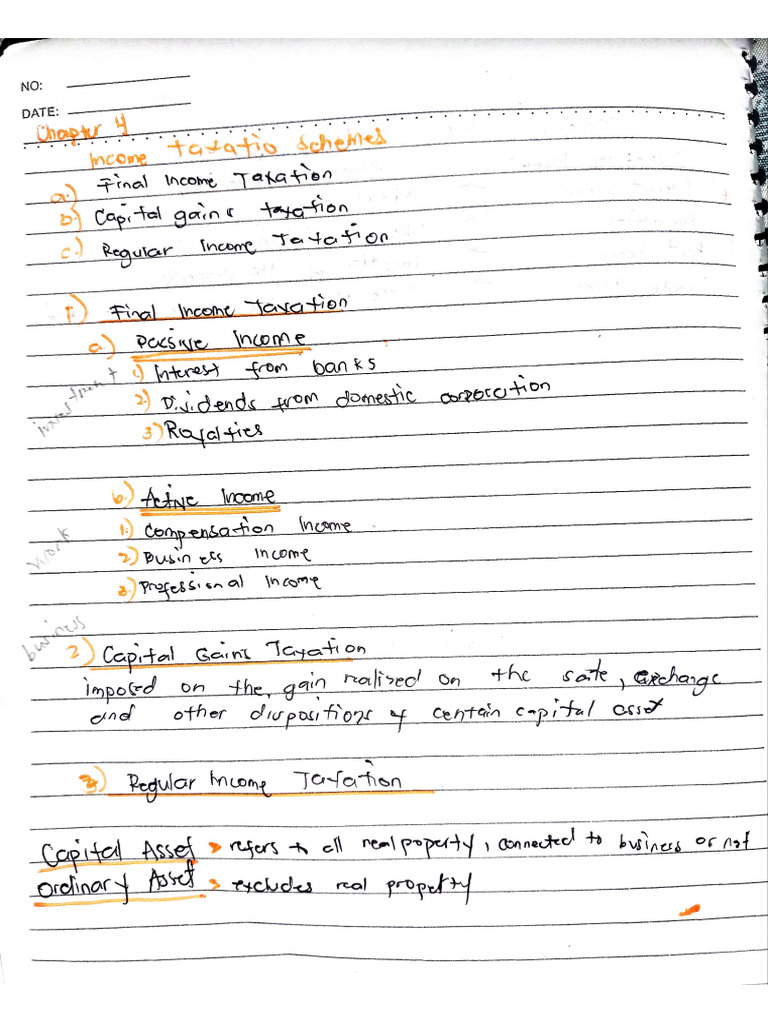 NO:
DATE:
Chapter 4
Income taxatio schemes
a.) Final Income Taxation
b.) Capital gains taxation
c.) Regular Income Taxation
1.) Final Income Taxation
a.) Passive Income
investment 1.) Interest from banks
2.) Dividends from domestic corporation
3) Royalties
b.) Active Income
1.) Compensation Income
work 2.) Business Income
3.) Professional Income
business
2) Capital Gains Taxation
imposed on the, gain realized on the sale, exchange
and other dispositions of certain capital asset
3) Regular Income Taxation
Capital Asset > refers to all real property, connected to business or not
Ordinary Asset > excludes real property